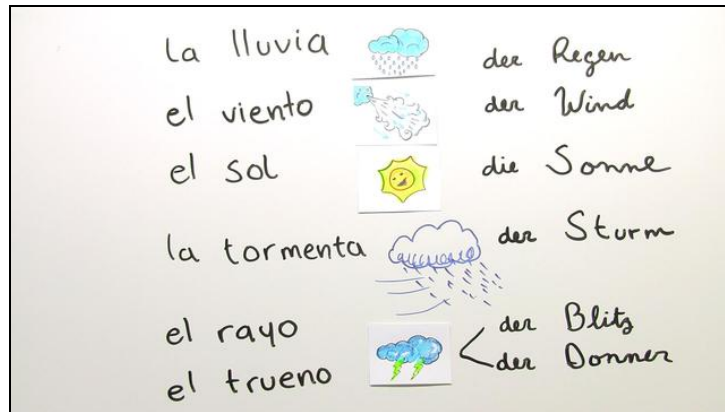 la lluvia der Regen
el viento der Wind
el sol die Sonne
la tormenta der Sturm
el rayo der Blitz
el trueno der Donner